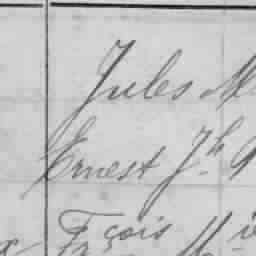 Jules M
Ernest Jh
Fçois M